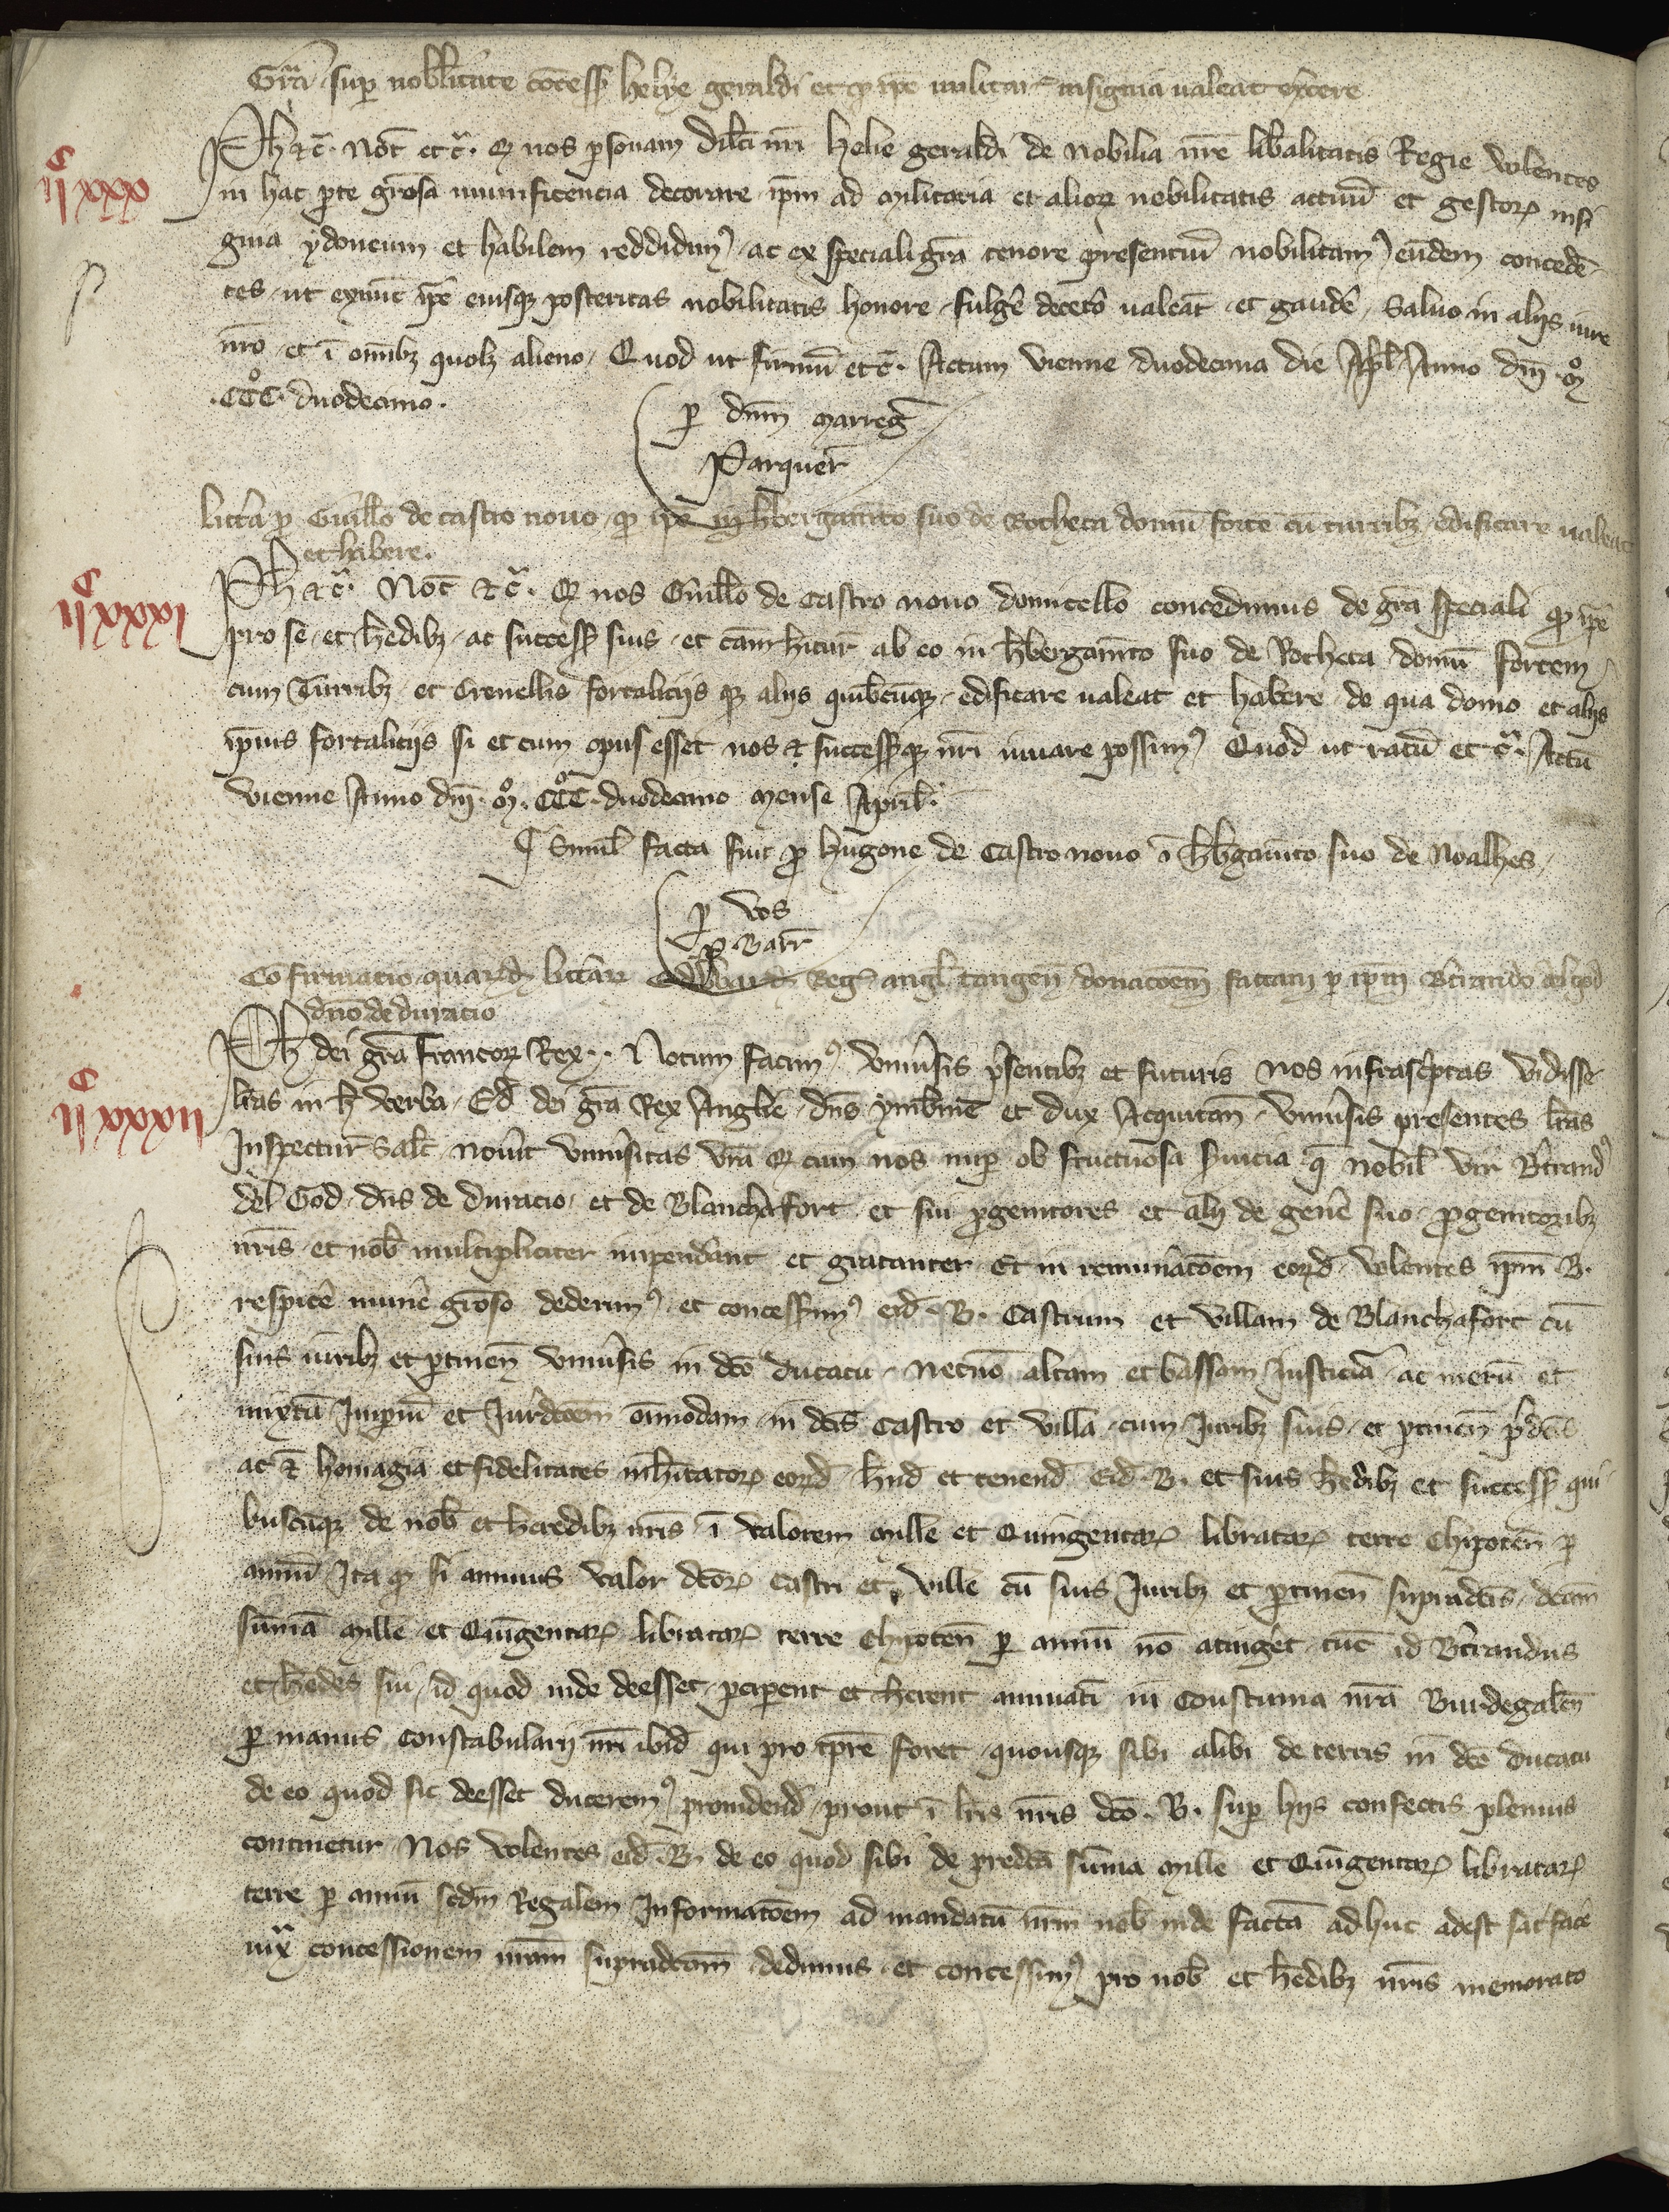 Gra sup nobilitate concess helye geraldi et q ipe militar insignia valeat exercere
Ph etc. Not etc. Q nos psonam dilcti nri helie geraldi de nobilia nre libalitatis Regie volentes
in hac pte grosa munificencia decorare ipm ad militaria et alior nobilitatis actuu et gestor insi
gnia ydoneum et habilem reddidim ac ex speciali gra tenore presentiu nobilitam eundem concede
tes ut exnunc ipe eiusq posteritas nobilitatis honore fulge decetero valeat et gaude, Salvo in alijs iure
nro et i omibz quolz alieno, Quod ut firmu etc. Actum vienne duodecima die Apl Anno dni mo
.CCCo. duodecimo.
p dnm marreg
Parquer
lictera p Guillo de castro novo q ipe in hbergamto suo de Rocheta domu forte cu turribz edificare valeat
et habere.
Ph etc. Not etc. Q nos Guillo de Castro novo domicello concedimus de gra speciali q ipe
pro se et hedibz ac success suis et cam hitur ab eo in hbergamto suo de Rocheta domu fortem
cum Turribz et Crenellis fortaliciis q alijs quibcuq edificare valeat et habere de qua domo et alijs
ipius fortaliciis si et cum opus esset nos et successq nri iuvare possim Quod ut ratu etc. Actu
vienne Anno dni mo CCCo duodecimo mense April.
Simil facta fuit p hugone de Castro novo i hbgamto suo de Noalhes,
p vos
p. Barr
Cofirmatio quard litterar Edwardi Reg angl tangen donacoem factam p ipm Btrando del god
dno de duracio
Ph dei gra francor Rex. Notum facim universis psentibz et futuris nos infrascptas vidisse
lras in h verba, Ed dei gra Rex Anglie dns ybnie et dux Acquitan universis presentes lras
Inspectur Salt noverit universitas vra q cum nos nup ob fructuosa svicia q nobil vir Btrand
del God dns de Duracio et de Blanchafort et sui pgenitores et alij de genere suo pgenitoribz
nris et nob multipliciter impenderant et gratanter Et in remuneracoem eord volentes ipm B.
respice munere groso dederim et concesserim eid B. Castrum et villam de Blanchafort cu
suis iuribz et ptinen universis in dco ducatu, Necno altam et bassam Justicia ac meru et
mixtu Imperiu et Jurdcoem omnodam in dcis Castro et villa cum Juribz suis et ptinen pdcis
ac et homagia et fidelitates inhitator eord hnd et tenend eid B. et suis hedibz et success qui
buscuq de nob et heredibz nris i valorem mille et Quingentar libratar terre Chipoten p
annu Ita q si annuus valor dcor castri et ville cu suis Juribz et ptinen supradcis dcam
summa mille et Quingentar libratar terre Chipoten p annu no atinget tuc id Btrandus
et hedes sui id quod inde deesset pciperent et herent annuati in Constuma nra Burdegalen
p manus constabularij nri ibid qui pro tpre foret quousq sibi alibi de terris in dco ducatu
de eo quod sic deesset ducerem providend prout i lris nris dco B. sup hijs confectis plenius
continetur Nos volentes eid B. de eo quod sibi de predca suma mille et Quingentar libratar
terre p annu scdm Regalem Informacoem ad mandatu nrm nob inde facta adhuc adest satisface
iux concessionem nram supradcam dedimus et concessim pro nob et hedibz nris memorato